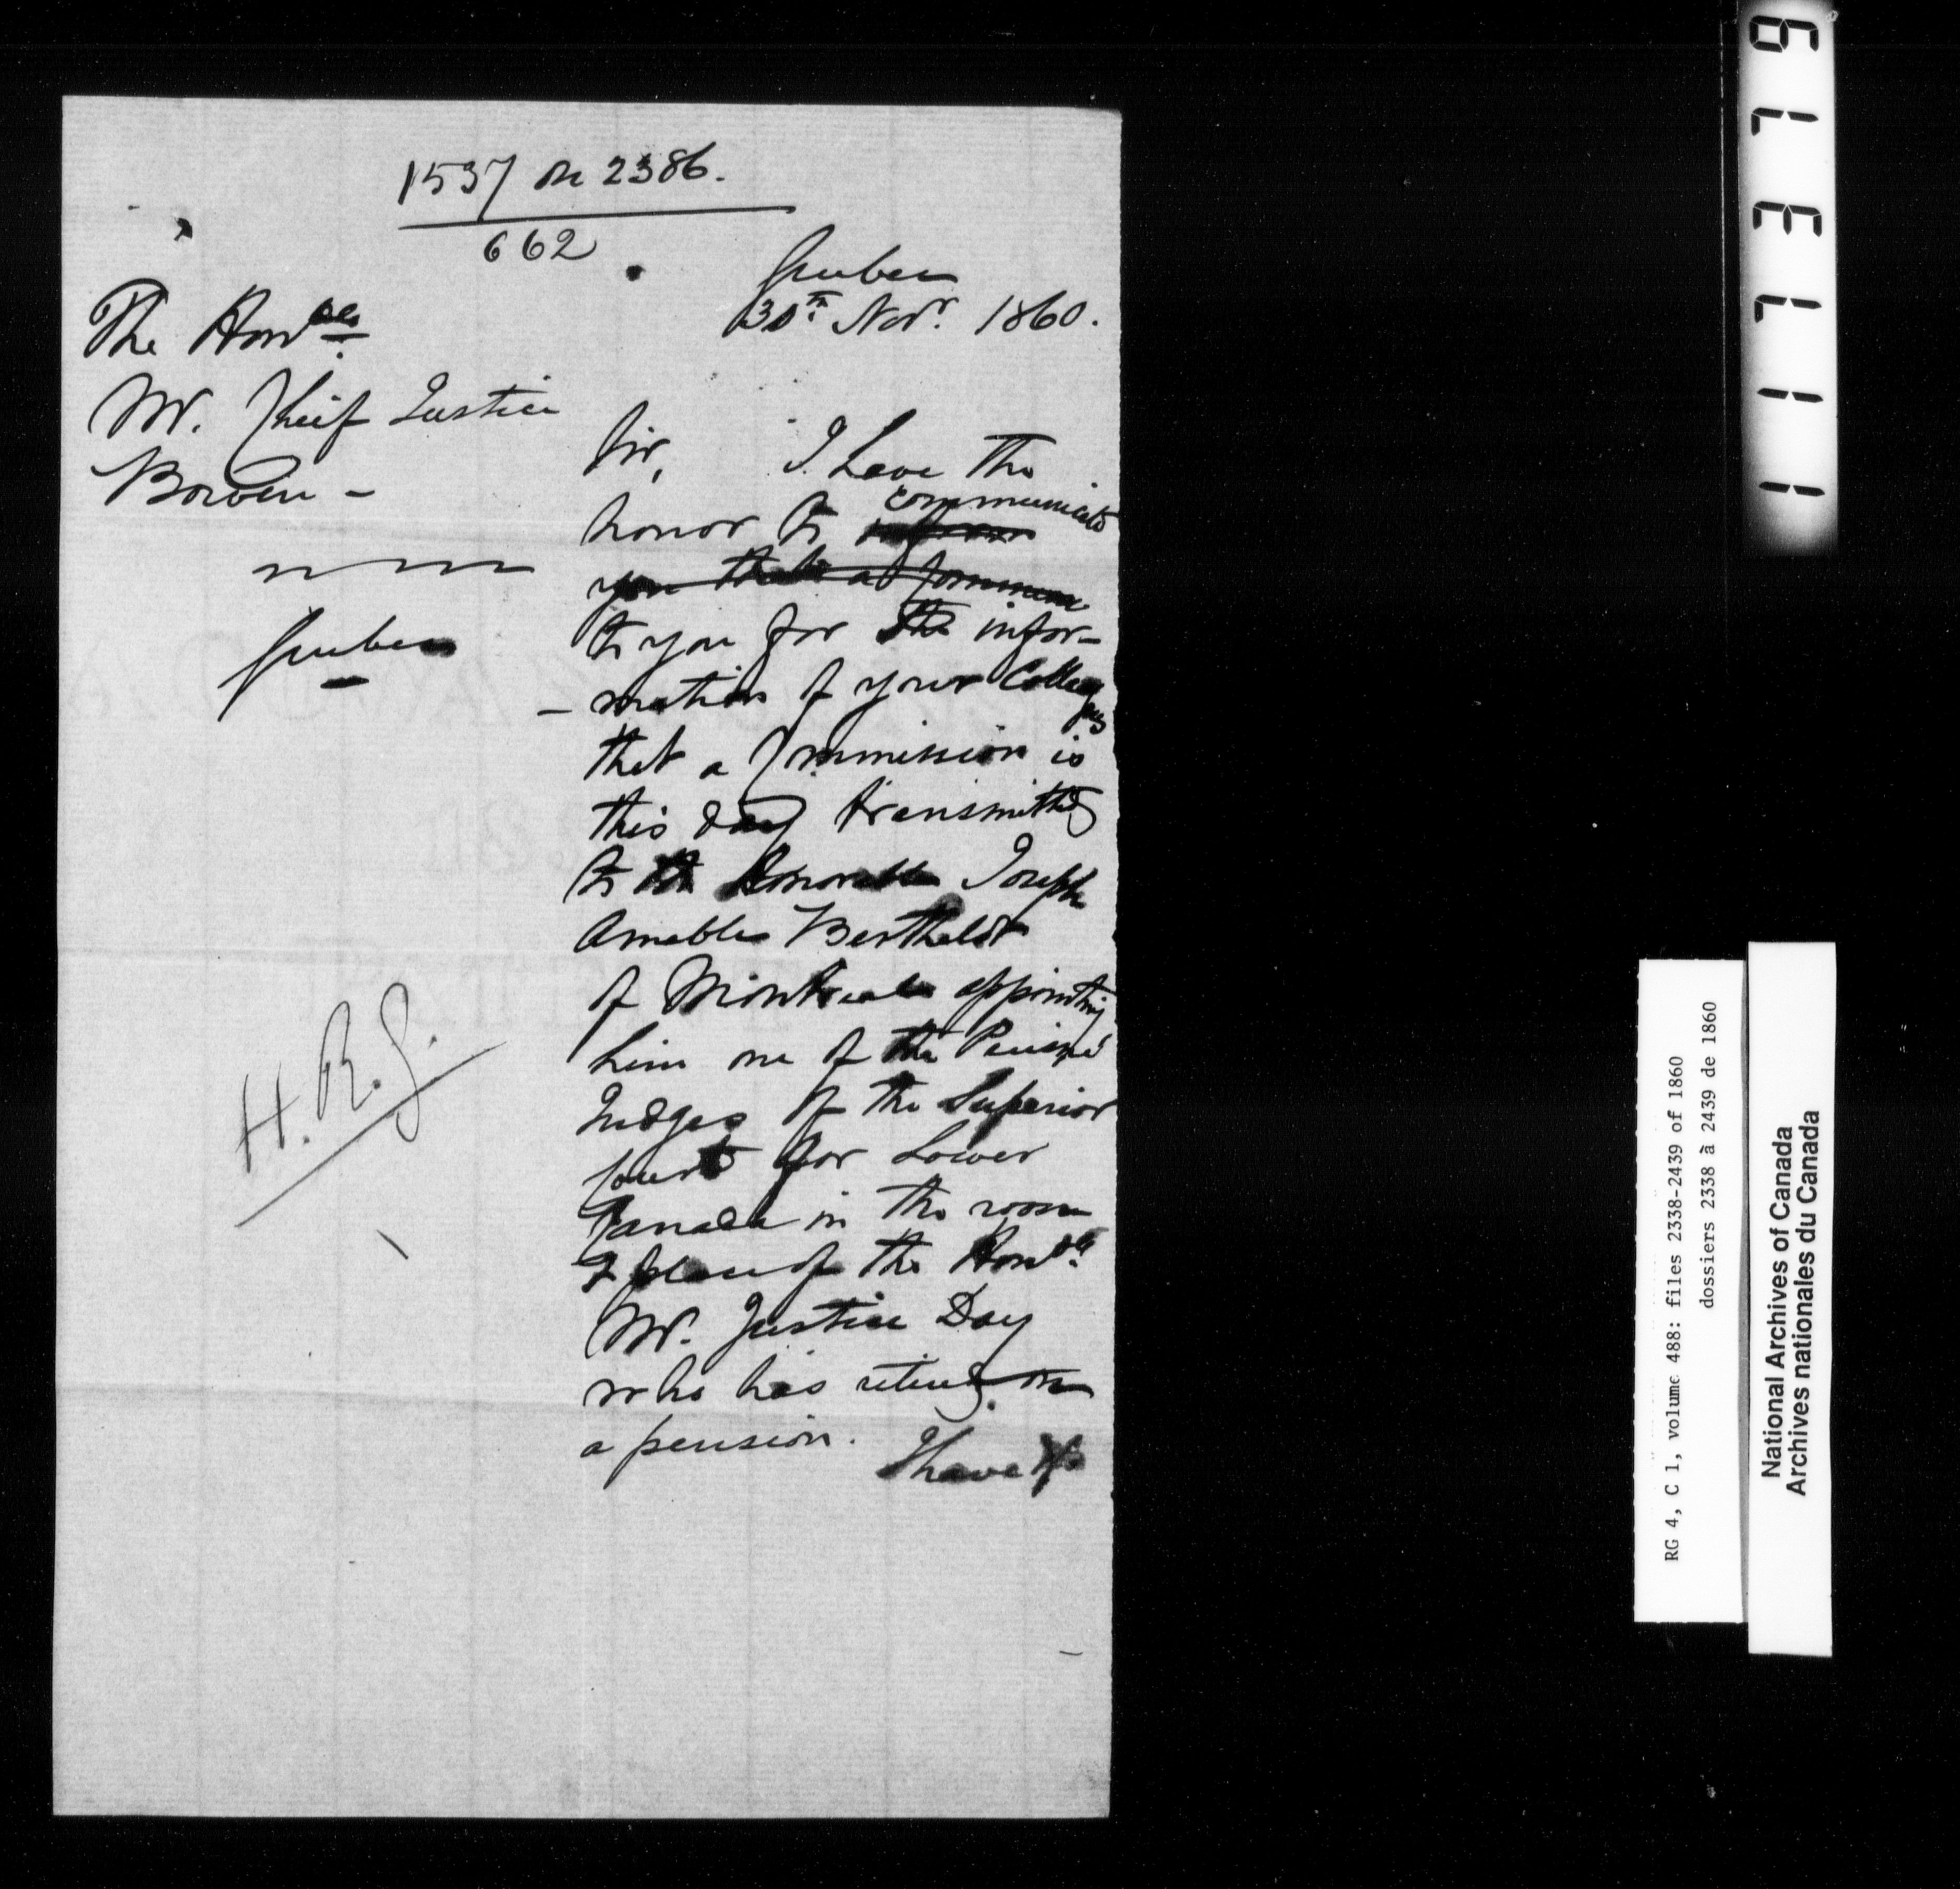 1537 on 2386.
662
Quebec
30th Novr. 1860.
The Honble.
Mr. Chief Justice
Bowen -
Quebec
Sir, I have the
honor to communicate
inform
you that a Commission
to you for the infor-
-mation of your Colleagues
that a Commission is
this day transmitted
to the Honorable Joseph
Amable Berthelot
of Montreal appointing
him one of the Puisné
Judges of the Superior
Court for Lower
Canada in the room
& place of the Honble.
Mr. Justice Day
who has retired on
a pension.
I have &c
H. R. G.
117379
RG 4, C 1, volume 488: files 2338-2439 of 1860
dossiers 2338 à 2439 de 1860
National Archives of Canada
Archives nationales du Canada